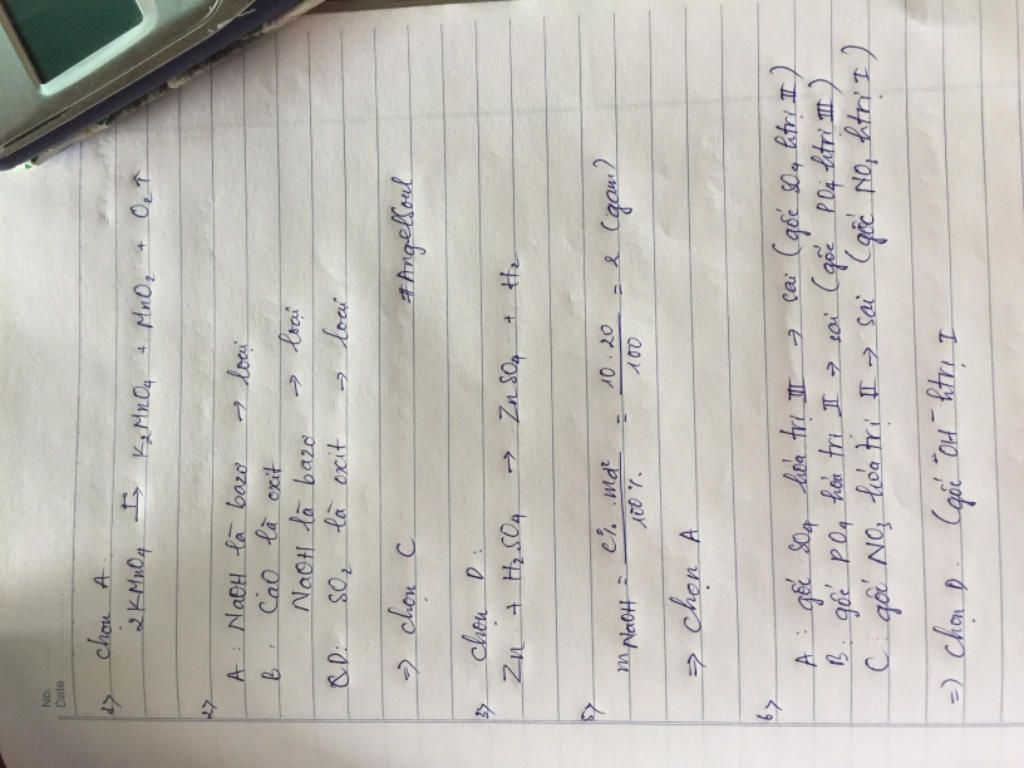 No.
Date
1> Chọn A.
2KMnO₄ →ᵗ K₂MnO₄ + MnO₂ + O₂↑
2>
A : NaOH là bazo → loại
B : CaO là oxit
NaOH là bazo → loại
D: SO₂ là oxit → loại
⇒ chọn C #AngelSoul
3> Chọn D:
Zn + H₂SO₄ → ZnSO₄ + H₂
5>
m NaOH = C%. mdd / 100% = 10.20 / 100 = 2 (gam)
⇒ Chọn A
6>
A : gốc SO₄ hóa trị III → sai (gốc SO₄ htrị II)
B : gốc PO₄ hóa trị II → sai (gốc PO₄ htrị III)
C : gốc NO₃ hóa trị II → sai (gốc NO₃ htrị I)
=) Chọn D. (gốc OH⁻ htrị I